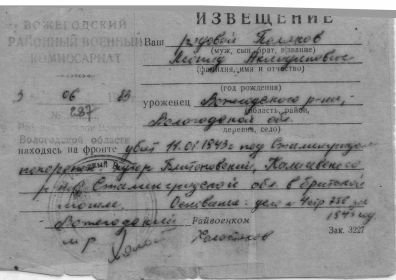 ИЗВЕЩЕНИЕ
ВОЖЕГОДСКИЙ
РАЙОННЫЙ ВОЕННЫЙ
КОМИССАРИАТ
Ваш рядовой Поляков
(муж, сын, брат, звание)
Леонид
(фамилия, имя и отчество)
(год рождения)
3 06 83
№ 287
Вологодской области
уроженец Вожегодского р-на,
(область, район,
Вологодской обл.
деревня, село)
находясь на фронте убит 11.01.1943г под Сталинградом
похоронен хутор
р-на Сталинградской обл. в братской
могиле. Основание: дело
1943 год
Вожегодский Райвоенком
Зак. 3227